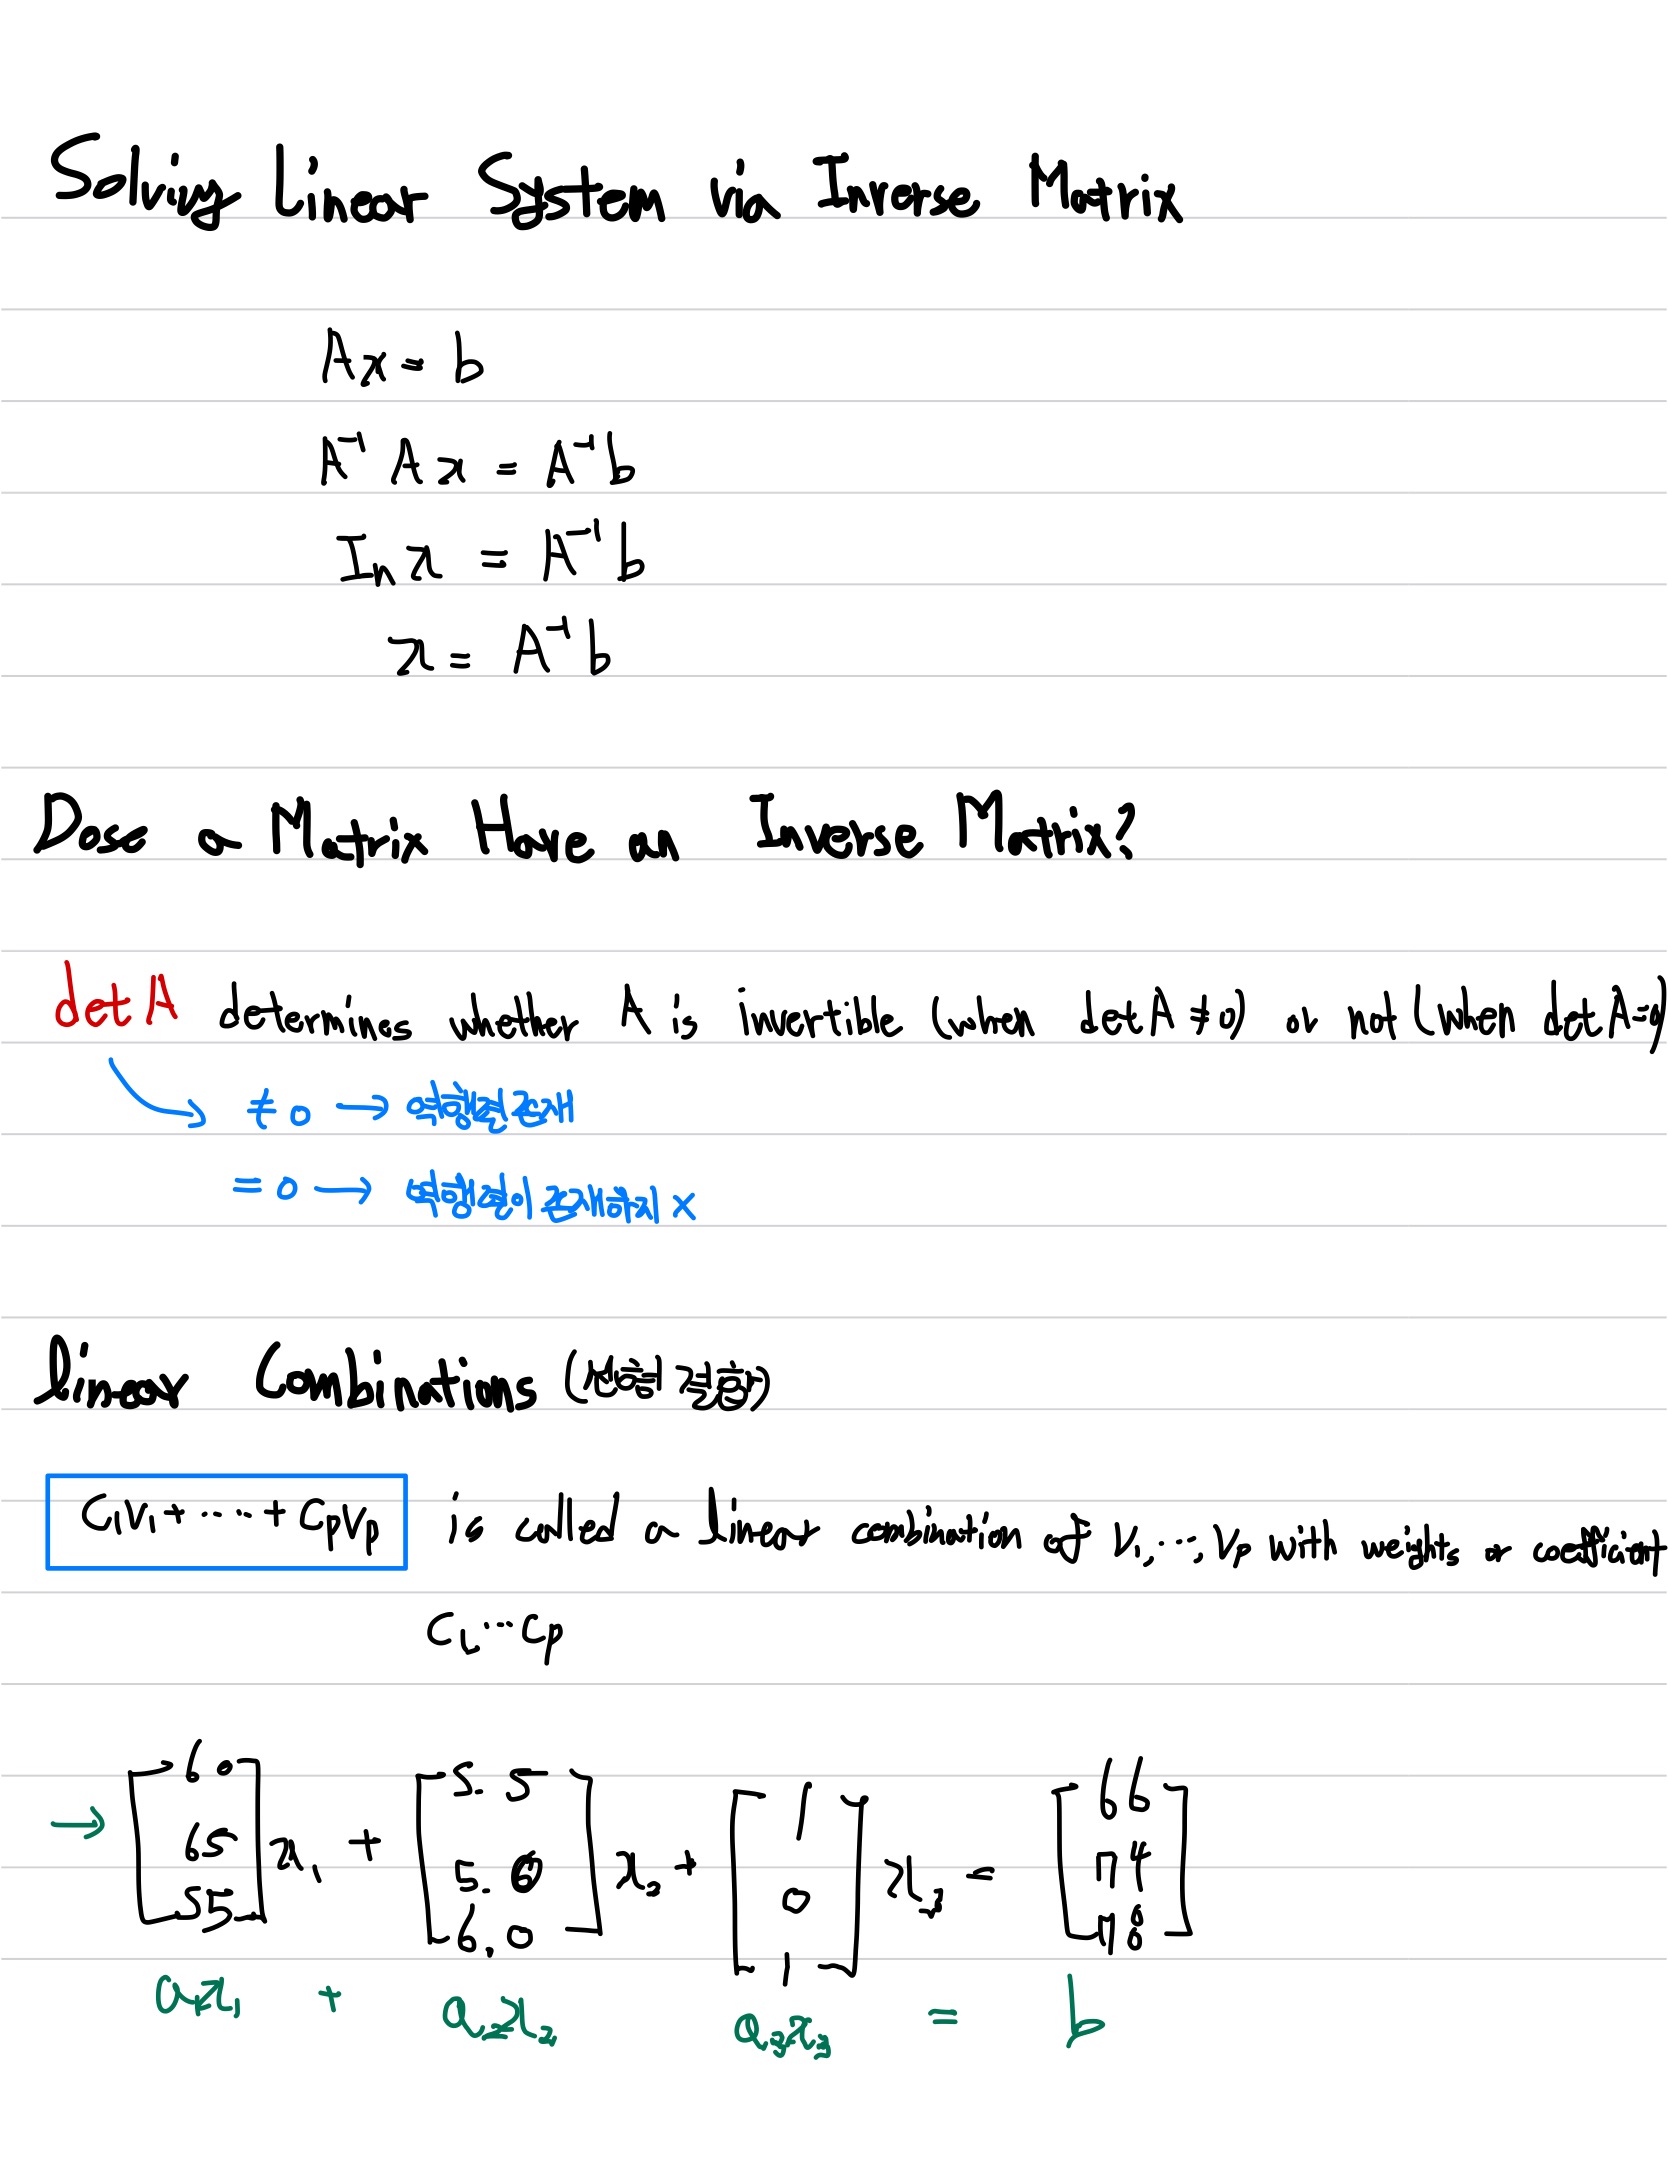 Solving Linear System via Inverse Matrix
Ax = b
A⁻¹ A x = A⁻¹ b
Iₙ x = A⁻¹ b
x = A⁻¹ b
Dose a Matrix Have an Inverse Matrix?
det A determines whether A is invertible (when det A ≠ 0) or not (when det A = 0)
≠ 0 → 역행렬 존재
= 0 → 역행렬이 존재하지 x
linear Combinations (선형 결합)
C₁V₁ + ⋯ + CₚVₚ is called a linear combination of V₁, ⋯, Vₚ with weights or coefficient
C₁, ⋯ Cₚ
→ [60 65 55] x₁ + [5.5 5.0 6.0] x₂ + [1 0 1] x₃ = [66 74 78]
a₁x₁ + a₂x₂ a₃x₃ = b